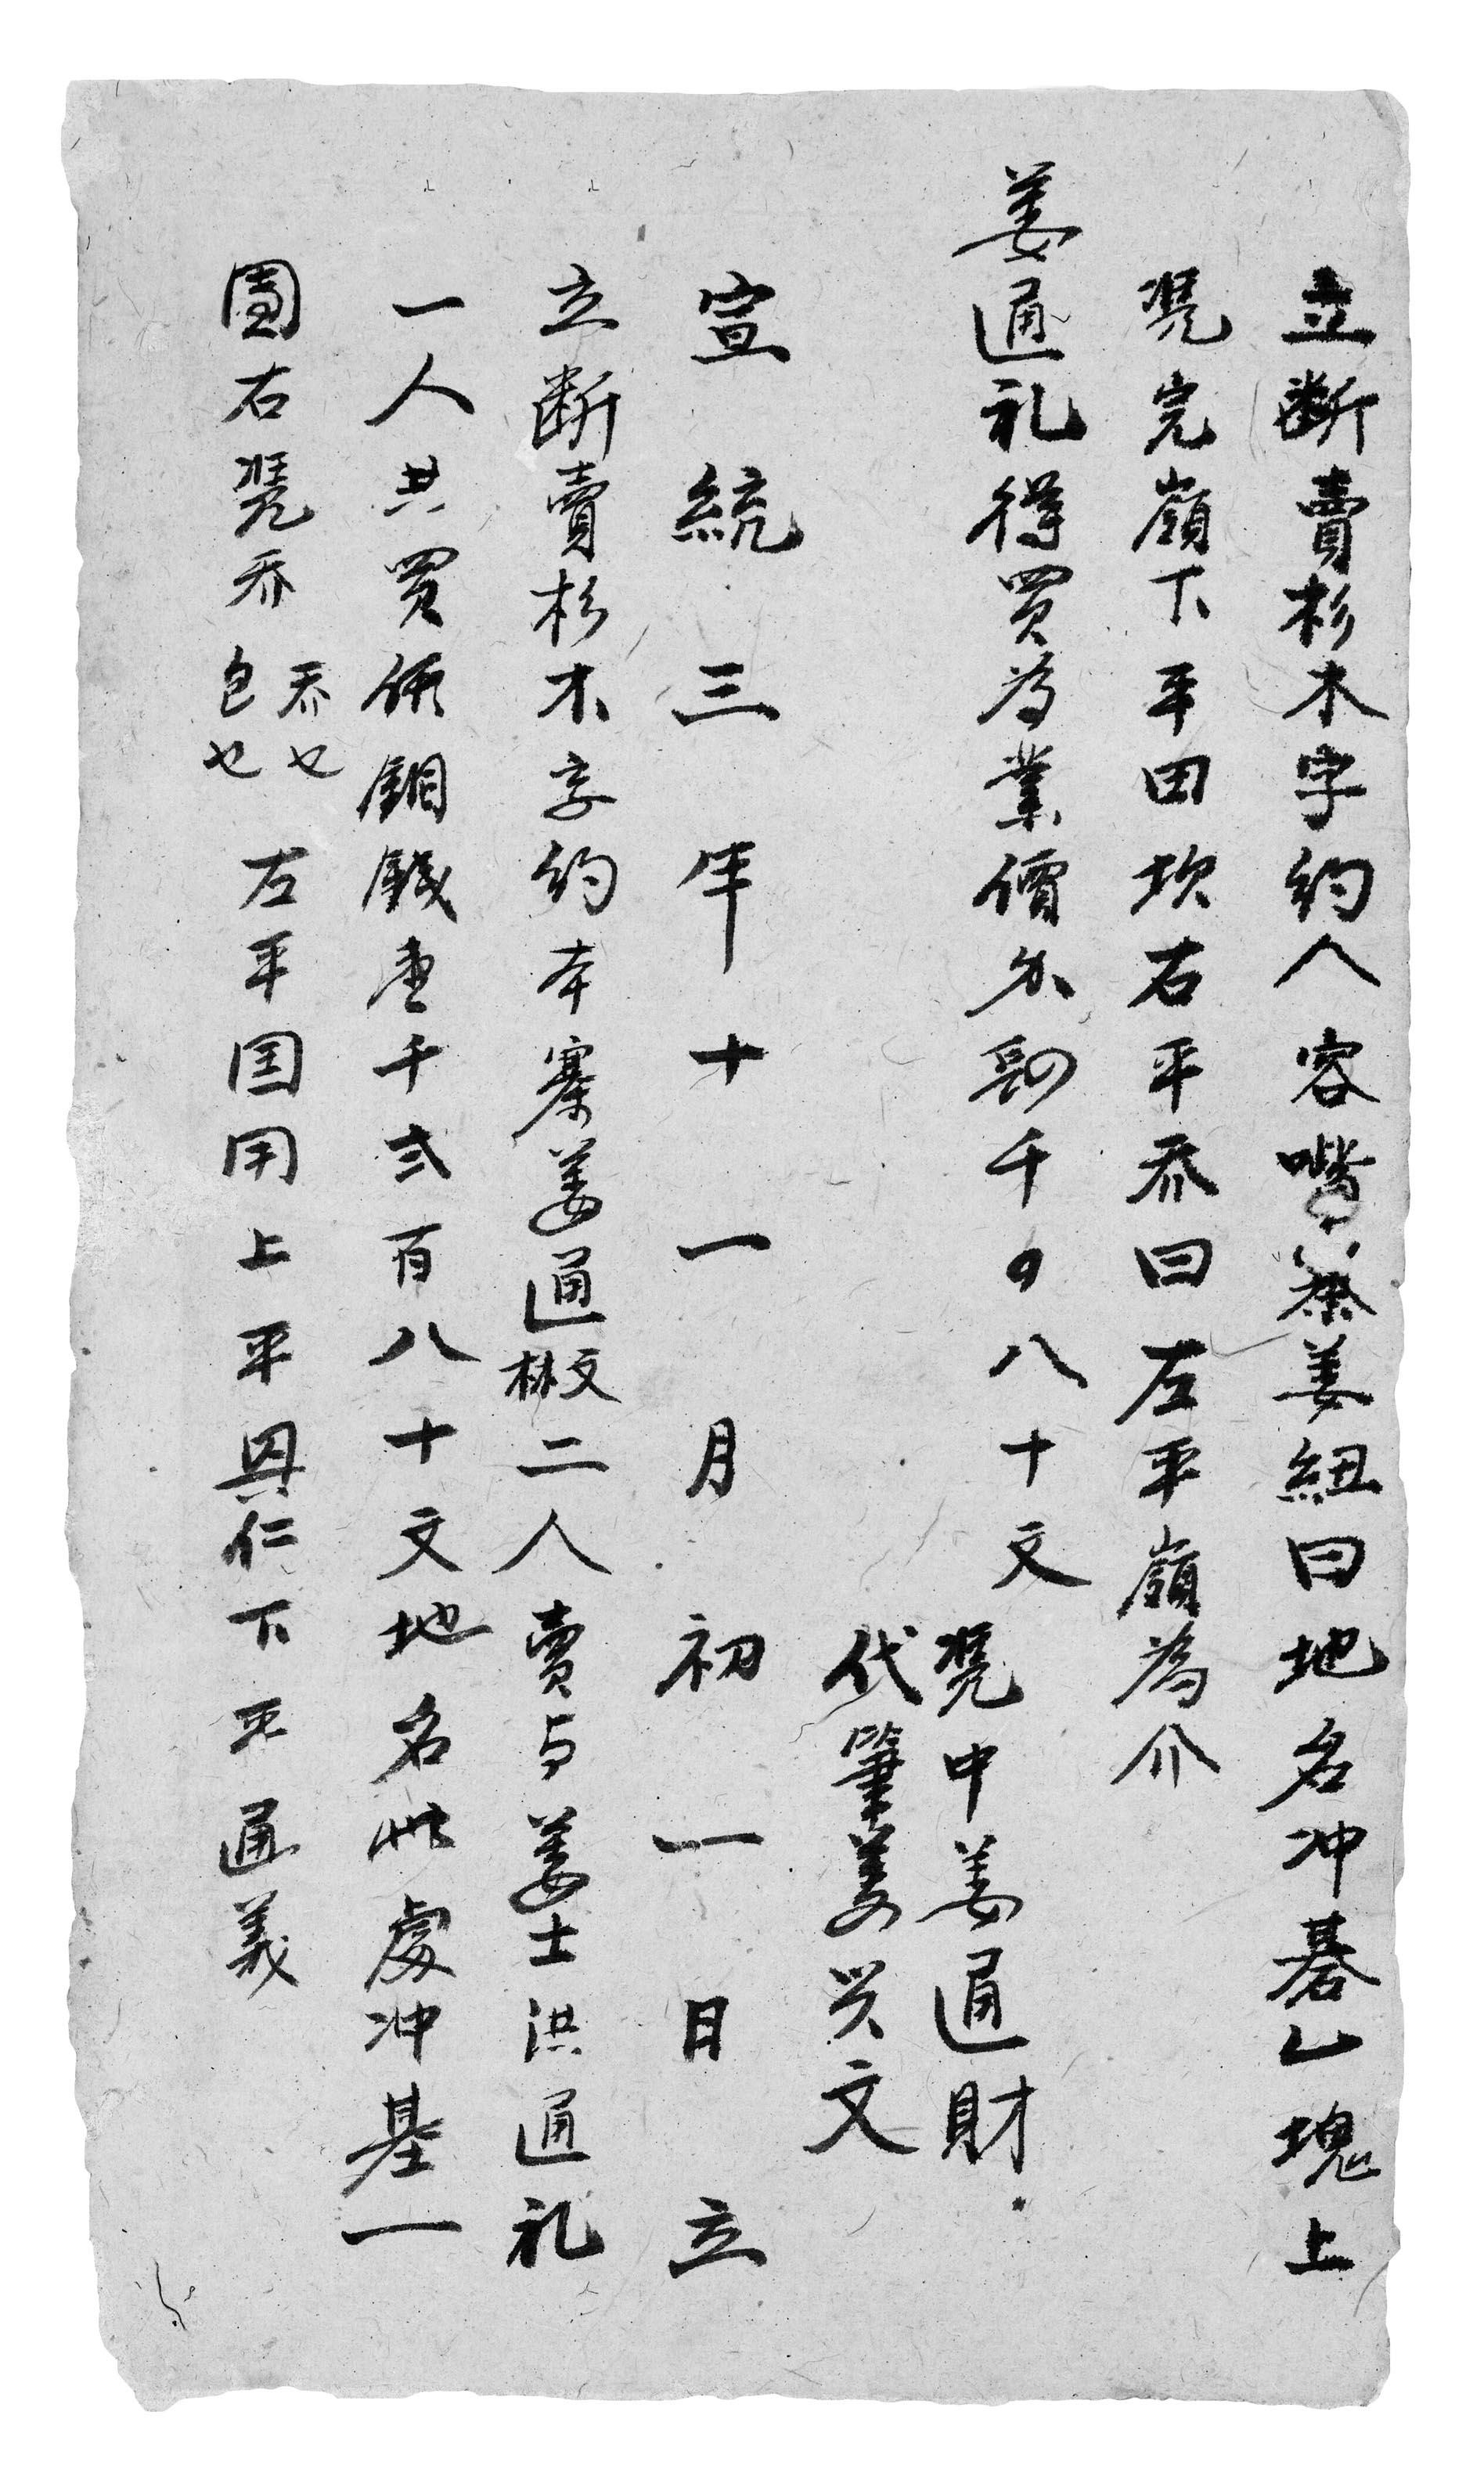 立断賣杉木字約人容嘴寨姜紐曰地名冲碁乚塊上
凴完嶺下平田坎右平乔曰左平嶺為介
姜通礼得買為業價外到千〇八十文
凴中姜通財
代筆姜兴文
宣統三年十一月初一日立
立断賣杉木字約本寨姜通彬文二人賣与姜士洪通礼
一人共買価銅錢壹千弍百八十文地名此處冲基一
團右凴乔乔也包也左平国用上平興仁下平通義